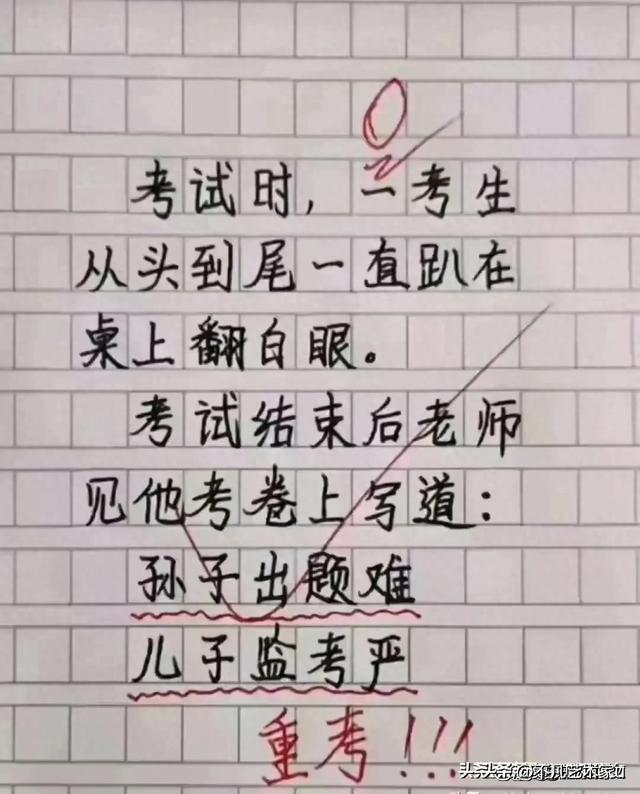 0
考试时，一考生
从头到尾一直趴在
桌上翻白眼。
考试结束后老师
见他考卷上写道：
孙子出题难
儿子监考严
重考！！！